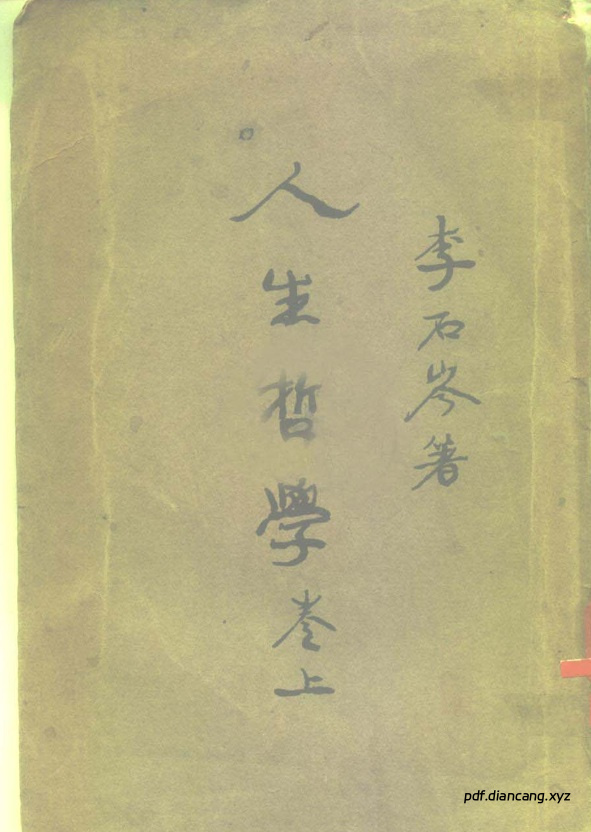 李石岑著
人生哲學卷上
pdf.diancang.xyz